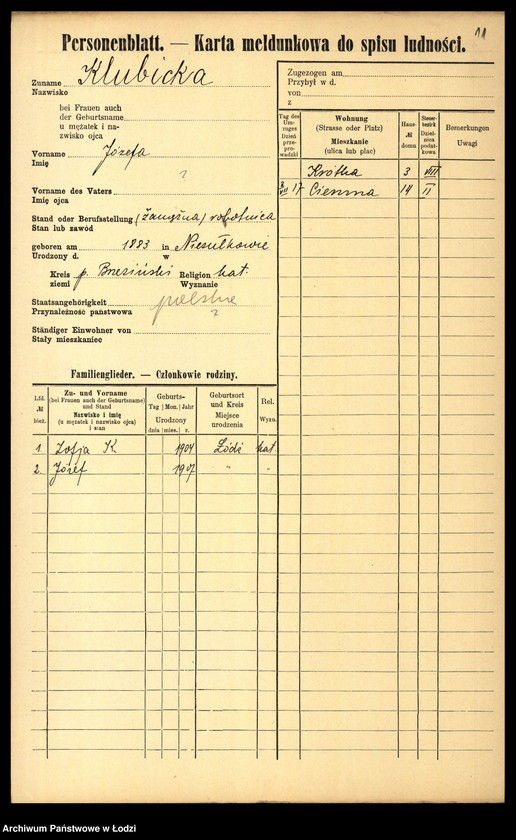 11
Personenblatt. — Karta meldunkowa do spisu ludności.
Zuname Klubicka
Nazwisko
bei Frauen auch
der Geburtsname
u mężatek i na-
zwisko ojca
Vorname Józefa
Imię
?
Vorname des Vaters
Imię ojca
Stand oder Berufsstellung (zamężna) robotnica
Stan lub zawód
geboren am 1883 in Niesułkowie
Urodzony d. w
Kreis p. Brzeziński Religion kat.
ziemi Wyznanie
Staatsangehörigkeit polska
Przynależność państwowa ?
Ständiger Einwohner von
Stały mieszkaniec
Zugezogen am
Przybył w d.
von
z
Tag des Um-zuges Dzień prze-prowadzki
Wohnung (Strasse oder Platz) Mieszkanie (ulica lub plac)
Haus-№ domu
Steuer-bezirk Dziel-nica podat-kowa
Bemerkungen Uwagi
Krótka 3 VIII
3/VII 17 Ciemna 14 II
Familienglieder. — Członkowie rodziny.
Lfd. № bież.
Zu- und Vorname (bei Frauen auch der Geburtsname) und Stand Nazwisko i imię (u mężatek i nazwisko ojca) i stan
Geburts- Tag Mon. Jahr Urodzony dnia mies. r.
Geburtsort und Kreis Miejsce urodzenia
Rel. Wyzn.
1. Zofja K 1904 Łódź kat
2. Józef 1907 " -
Archiwum Państwowe w Łodzi